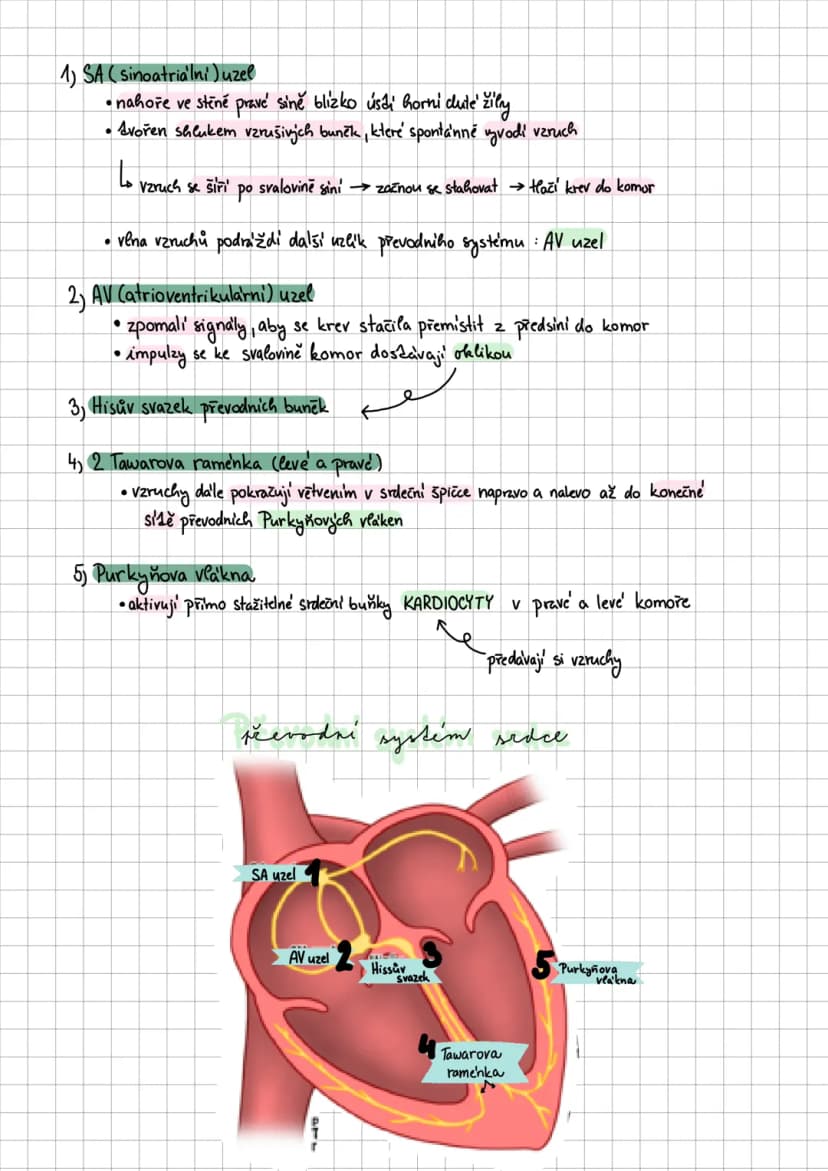 1) SA (sinoatriální) uzel
• nahoře ve stěně pravé síně blízko ústí horní duté žíly
• tvořen shlukem vzrušivých buněk, které spontánně vyvodí vzruch
↳ vzruch se šíří po svalovině síní → začnou se stahovat → tlačí krev do komor
• vlna vzruchů podráždí další uzlík převodního systému : AV uzel
2) AV (atrioventrikulární) uzel
• zpomalí signály, aby se krev stačila přemístit z předsíní do komor
• impulzy se ke svalovině komor dostávají oklikou
3) Hisův svazek převodních buněk
4) 2 Tawarova raménka (levé a pravé)
• vzruchy dále pokračují větvením v srdeční špičce napravo a nalevo až do konečné
sítě převodních Purkyňových vláken
5) Purkyňova vlákna
• aktivují přímo stažitelné srdeční buňky KARDIOCYTY v pravé a levé komoře
předávají si vzruchy
Převodní systém srdce
SA uzel 1
AV uzel 2
Hissův svazek 3
5 Purkyňova
vlákna
4 Tawarova
raménka